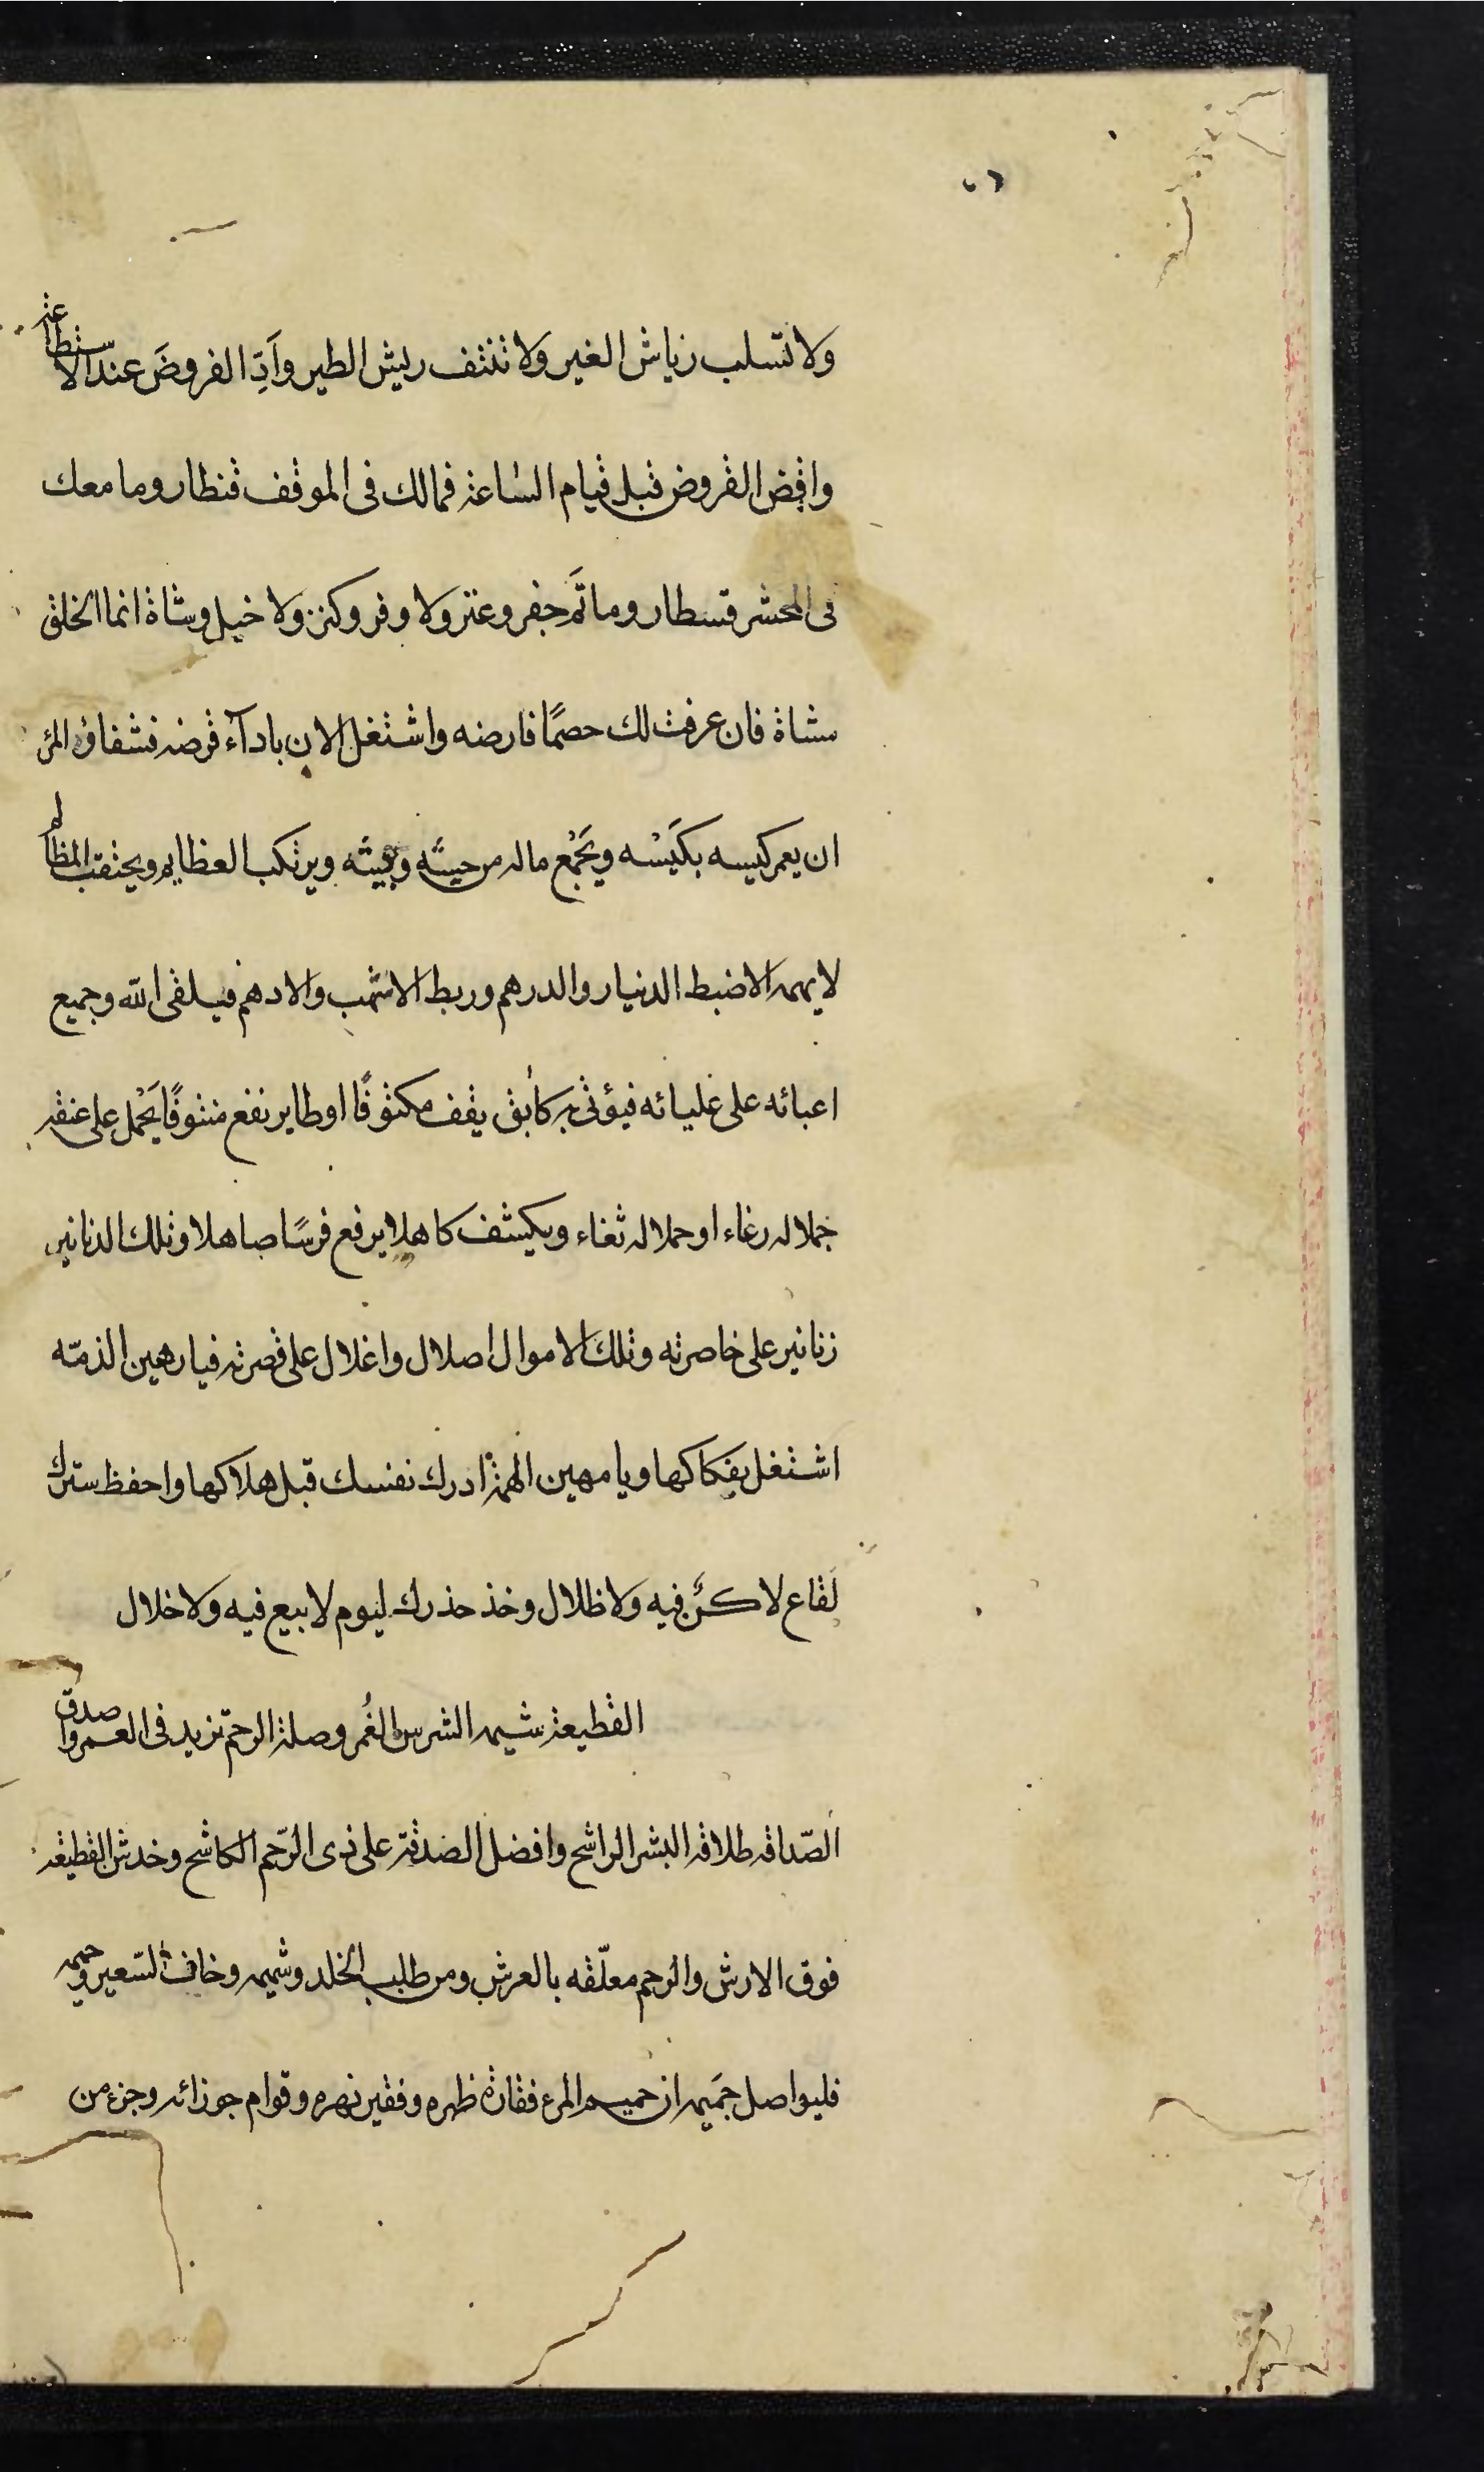 ٥٦
ولا تسلب رياش الغير ولا تنتف ريش الطير وأدِّ الفروضَ عند الاستطاعة
واقض القروض قبل قيام الساعة فمالك فى الموقف قنطار وما معك
فى المحشر قسطار وما ثَم جفر وعنز ولا وفر وكنز ولا خيل وشاة انما الخلق
مشاة فان عرفت لك خصمًا فارضه واشتغل الان باداء قرضه فشقاوة المرء
ان يعمر كيسه بكَيْسه ويَجْمع ماله من حيسه وبيسه ويرتكب العظايم ويحتقب المظالم
لا يهمه الا ضبط الدينار والدرهم وربط الاشهب والادهم فيلقى الله وجميع
اعبائه على عليائه فيؤتى به كآبق يقف مكتوفًا او طاير نفع منتوفًا يَحْمل على عنقه
جملا له رغاء او حملا له ثغاء ويكشف كاهلا يرفع فرسًا صاهلا وتلك الدنانير
زنانير على خاصرته وتلك الاموال اصلال واغلال على قصرته فيا رهين الذمّة
اشتغل بفكاكها ويا مهين الهمة ادرك نفسك قبل هلاكها واحفظ سترك
لقاع لا كنَّ فيه ولا ظلال وخذ حذرك ليوم لا بيع فيه ولا خلال
القطيعة شيمة الشرس الغُمر وصلة الرحم تزيد فى العمر واصدق
الصّداقة طلاقة البشر الراشح وافضل الصدقة على ذى الرّحم الكاشح وخدش القطيعة
فوق الارش والرحم معلّقة بالعرش ومن طلب الخلد وشميمه وخاف السّعير وحميمه
فليواصل حَميمه ان حميم المرء فقارة ظهره وفقير نهره وقوام جوزائه وجزء من